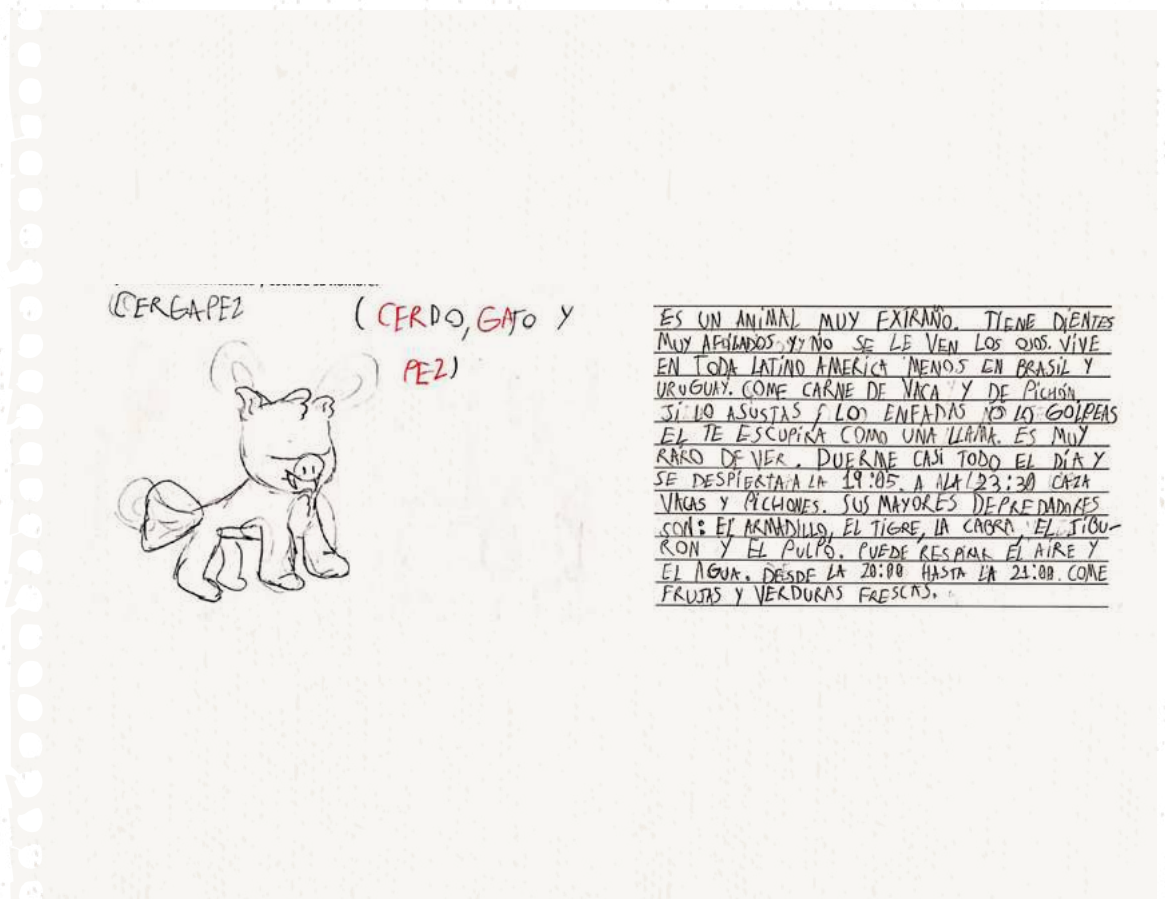 CERGAPEZ (CERDO, GATO Y
PEZ)
ES UN ANIMAL MUY EXTRAÑO. TIENE DIENTES
MUY AFILADOS, Y NO SE LE VEN LOS OJOS. VIVE
EN TODA LATINO AMERICA MENOS EN BRASIL Y
URUGUAY. COME CARNE DE VACA Y DE PICHÓN.
SI LO ASUSTAS LO ENFADAS LO GOLPEAS
EL TE ESCUPIRA COMO UNA LLAMA. ES MUY
RARO DE VER. DUERME CASI TODO EL DÍA Y
SE DESPIERTA A LA 19:05. A LA 23:30 CAZA
VACAS Y PICHONES. SUS MAYORES DEPREDADORES
SON: EL ARMADILLO, EL TIGRE, LA CABRA, EL TIBU-
RON Y EL PULPO. PUEDE RESPIRAR EL AIRE Y
EL AGUA. DESDE LA 20:00 HASTA LA 21:00 COME
FRUTAS Y VERDURAS FRESCAS.